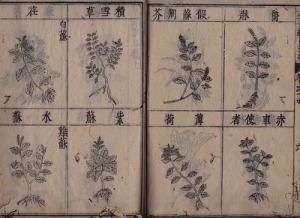 爵牀
假蘇荊芥
赤車使者
薄荷
積雪草
荏
白蘇
紫蘇
水蘇
雞蘇